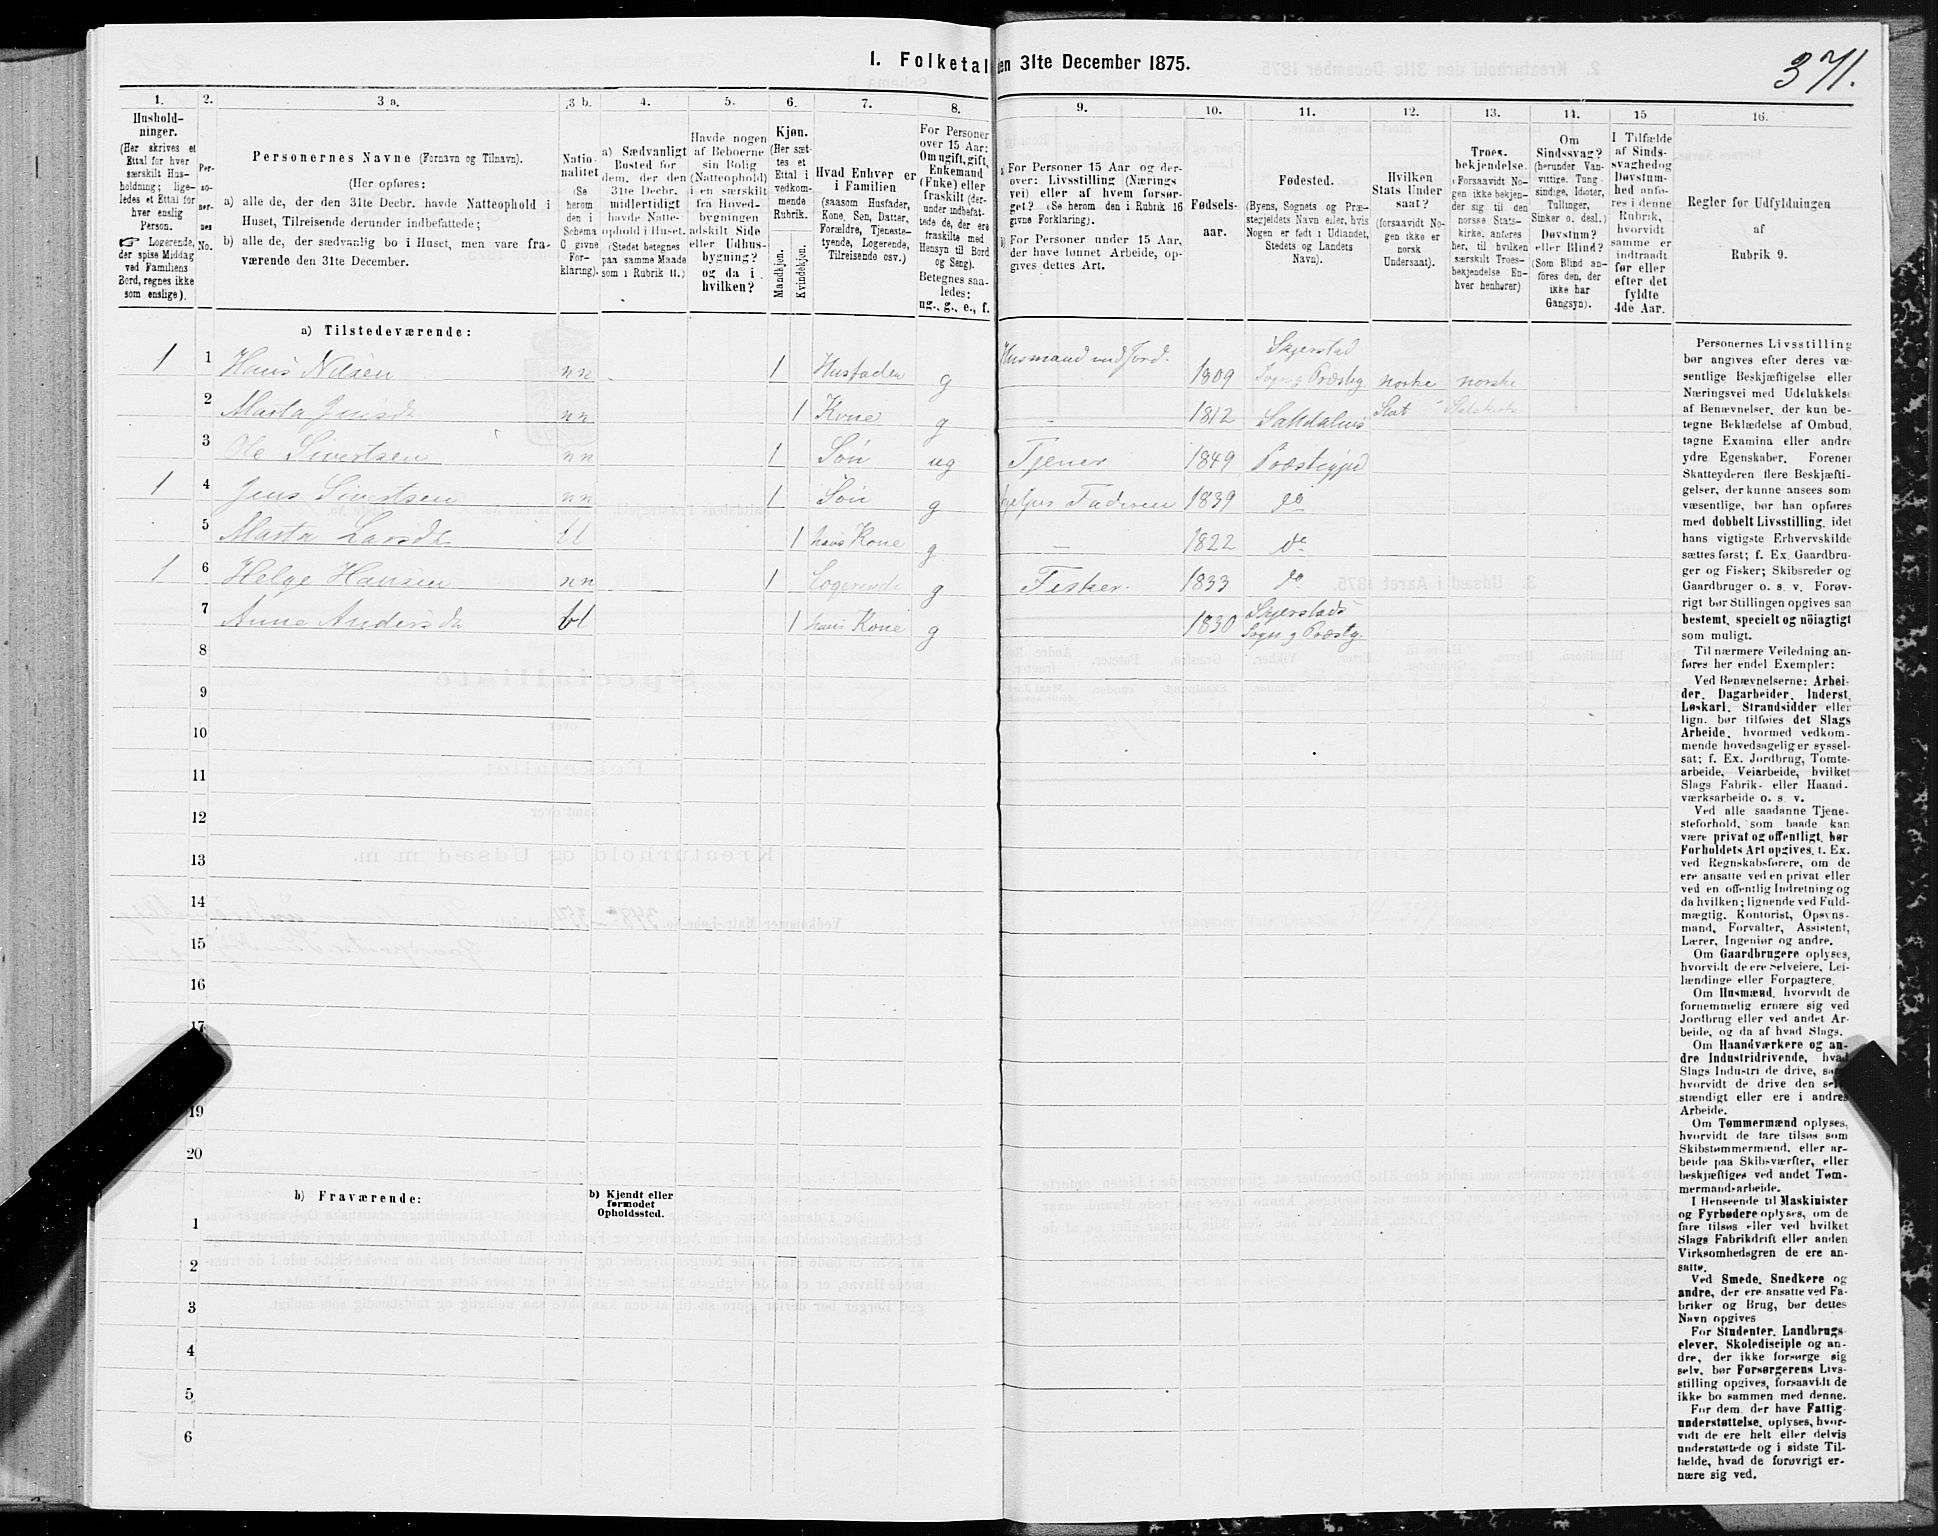 1. Folketal den 31te December 1875.
371.
1. 2. 3 a. 3 b. 4. 5. 6. 7. 8. 9. 10. 11. 12. 13. 14. 15 16.
Hushold-
ninger.
(Her skrives et
Ettal for hver
særskilt Hus-
holdning; lige-
ledes et Ettal for
hver enslig
Person.
☞ Logerende,
der spise Middag
ved Familiens
Bord, regnes ikke
som enslige).
Per-
so-
ner-
nes
No.
Personernes Navne (Fornavn og Tilnavn).
(Her opføres:
a) alle de, der den 31te Decbr. havde Natteophold i
Huset, Tilreisende derunder indbefattede;
b) alle de, der sædvanlig bo i Huset, men vare fra-
værende den 31te December.
Natio-
nalitet
(Se
herom
den i
Schema
G givne
For-
klaring).
a) Sædvanligt
Bosted for
dem, der den
31te Decbr.
midlertidigt
havde Natte-
ophold i Huset.
(Stedet betegnes
paa samme Maade
som i Rubrik 11.)
Havde nogen
af Beboerne
sin Bolig
(Natteophold)
i en særskilt
fra Hoved-
bygningen
adskilt Side
eller Udhus-
bygning?
og da i
hvilken?
Kjøn.
(Her sæt-
tes et
Ettal i
vedkom-
mende
Rubrik.
Mandkjøn.
Kvindekjøn.
Hvad Enhver er
i Familien
(saasom Husfader,
Kone, Søn, Datter,
Forældre, Tjeneste-
tyende, Logerende,
Tilreisende osv.)
For Personer
over 15 Aar:
Om ugift, gift,
Enkemand
(Enke) eller
fraskilt (der-
under indbefat-
tede de, der ere
fraskilte med
Hensyn til Bord
og Seng).
Betegnes saa-
ledes:
ug., g., e., f.
a) For Personer 15 Aar og der-
over: Livsstilling (Nærings-
vei) eller af hvem forsør-
get? (Se herom den i Rubrik 16
givne Forklaring).
b) For Personer under 15 Aar,
der have lønnet Arbeide, op-
gives dettes Art.
Fødsels-
aar.
Fødested.
(Byens, Sognets og Præ-
stegjeldets Navn eller, hvis
Nogen er født i Udlandet,
Stedets og Landets
Navn).
Hvilken
Stats Under
saat?
(forsaavidt No-
gen ikke er
norsk
Undersaat).
Troes-
bekjendelse.
(Forsaavidt No-
gen ikke bekjen-
der sig til den
norske Stats-
kirke, anføres
her, til hvilken
særskilt Troes-
bekjendelse En-
hver henhører)
Om
Sindssvag?
(herunder Van-
vittige, Tung-
sindige, Idioter,
Tullinger,
Sinker o. desl.)
Døvstum?
eller Blind?
(Som Blind an-
føres den, der
ikke har
Gangsyn).
I Tilfælde
af Sinds-
svaghed og
Døvstum-
hed anfø-
res i denne
Rubrik,
hvorvidt
samme er
indtraadt
før eller
efter det
fyldte
4de Aar.
Regler for Udfyldningen
af
Rubrik 9.
a) Tilstedeværende:
1 1 Hans Nilsen nn 1 Husfader g Husmand med Jord. 1809 Skjerstad Sogn og Præstg norske norske
2 Marta Jensdt nn 1 Kone g - 1812 Saltdalens Stat Statskirke
3 Ole Sivertsen nn 1 Søn ug Tjener 1849 Præstegjd
1 4 Jens Sivertsen nn 1 Søn g hjelper Faderen 1839 do
5 Marta Larsdt bl 1 hans Kone g - 1822 do
1 6 Helge Hansen nn 1 Logerende g Fisker. 1833 do
7 Anne Andersdt bl 1 hans Kone g 1830 Skjerstads Sogn og Præstg.
8
9
10
11
12
13
14
15
16
17
19
20
b) Fraværende:
b) Kjendt eller
formodet
Opholdssted.
1
2
3
4
5
6
Personernes Livsstilling
bør angives efter deres væ-
sentlige Beskjæftigelse eller
Næringsvei med Udelukkelse
af Benævnelser, der kun be-
tegne Beklædelse af Ombud,
tagne Examina eller andre
ydre Egenskaber. Forener
Skatteyderen flere Beskjæfti-
gelser, der kunne ansees som
væsentlige, bør han opføres
med dobbelt Livsstilling, idet
hans vigtigste Erhvervskilde
sættes først; f. Ex. Gaardbru-
ger og Fisker; Skibsreder og
Gaardbruger o. s. v. Forøv-
rigt bør Stillingen opgives saa
bestemt, specielt og nöiagtigt
som muligt.
Til nærmere Veiledning an-
føres her endel Exempler:
Ved Benævnelserne: Arbei-
der, Dagarbeider, Inderst,
Løskarl, Strandsidder eller
lign. bør tilføies det Slags
Arbeide, hvormed vedkom-
mende hovedsagelig er syssel-
sat; f. Ex. Jordbrug, Tomte-
arbeide, Veiarbeide, hvilket
Slags Fabrik- eller Haand-
værksarbeide o. s. v.
Ved alle saadanne Tjene-
steforhold, som baade kan
være privat og offentligt, bør
Forholdets Art opgives, t. Ex.
ved Regnskabsførere, om de
ere ansatte ved en privat eller
ved en offentlig Indretning og
da hvilken; lignende ved Fuld-
mægtig, Kontorist, Opsyns-
mand, Forvalter, Assistent,
Lærer, Ingeniør og andre.
Om Gaardbrugere oplyses,
hvorvidt de ere Selveiere, Lei-
lændinge eller Forpagtere.
Om Husmænd, hvorvidt de
fornemmelig ernære sig ved
Jordbrug eller ved andet Ar-
beide, og da af hvad Slags.
Om Haandværkere og an-
dre Industridrivende, hvad
Slags Industri de drive, samt
hvorvidt de drive den selv-
stændigt eller ere i andres
Arbeide.
Om Tømmermænd oplyses,
hvorvidt de fare tilsøs som
Skibstømmermænd, eller ar-
beide paa Skibsværfter, eller
beskjæftiges ved andet Tøm-
mermandsarbeide.
I Henseende til Maskinister
og Fyrbødere oplyses, om de
fare tilsøs eller ved hvilket
Slags Fabrikdrift eller anden
Virksomhedsgren de ere an-
satte.
Ved Smede, Snedkere og
andre, der ere ansatte ved Fa-
briker og Brug, bør dettes
Navn opgives
For Studenter, Landbrugs-
elever, Skoledisciple og an-
dre, der ikke forsørge sig
selv, bør Forsørgerens Livs-
stilling opgives, forsaavidt de
ikke bo sammen med denne.
For dem, der have Fattig-
understøttelse, oplyses, hvor-
vidt de ere helt eller delvis
understøttede og i sidste Til-
fælde, hvad de forøvrigt er-
nære sig ved.